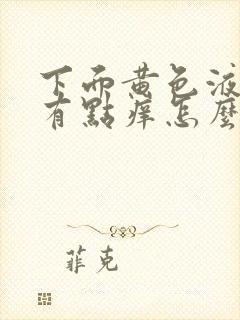 下而黄色液
有點痒怎麼
菲克